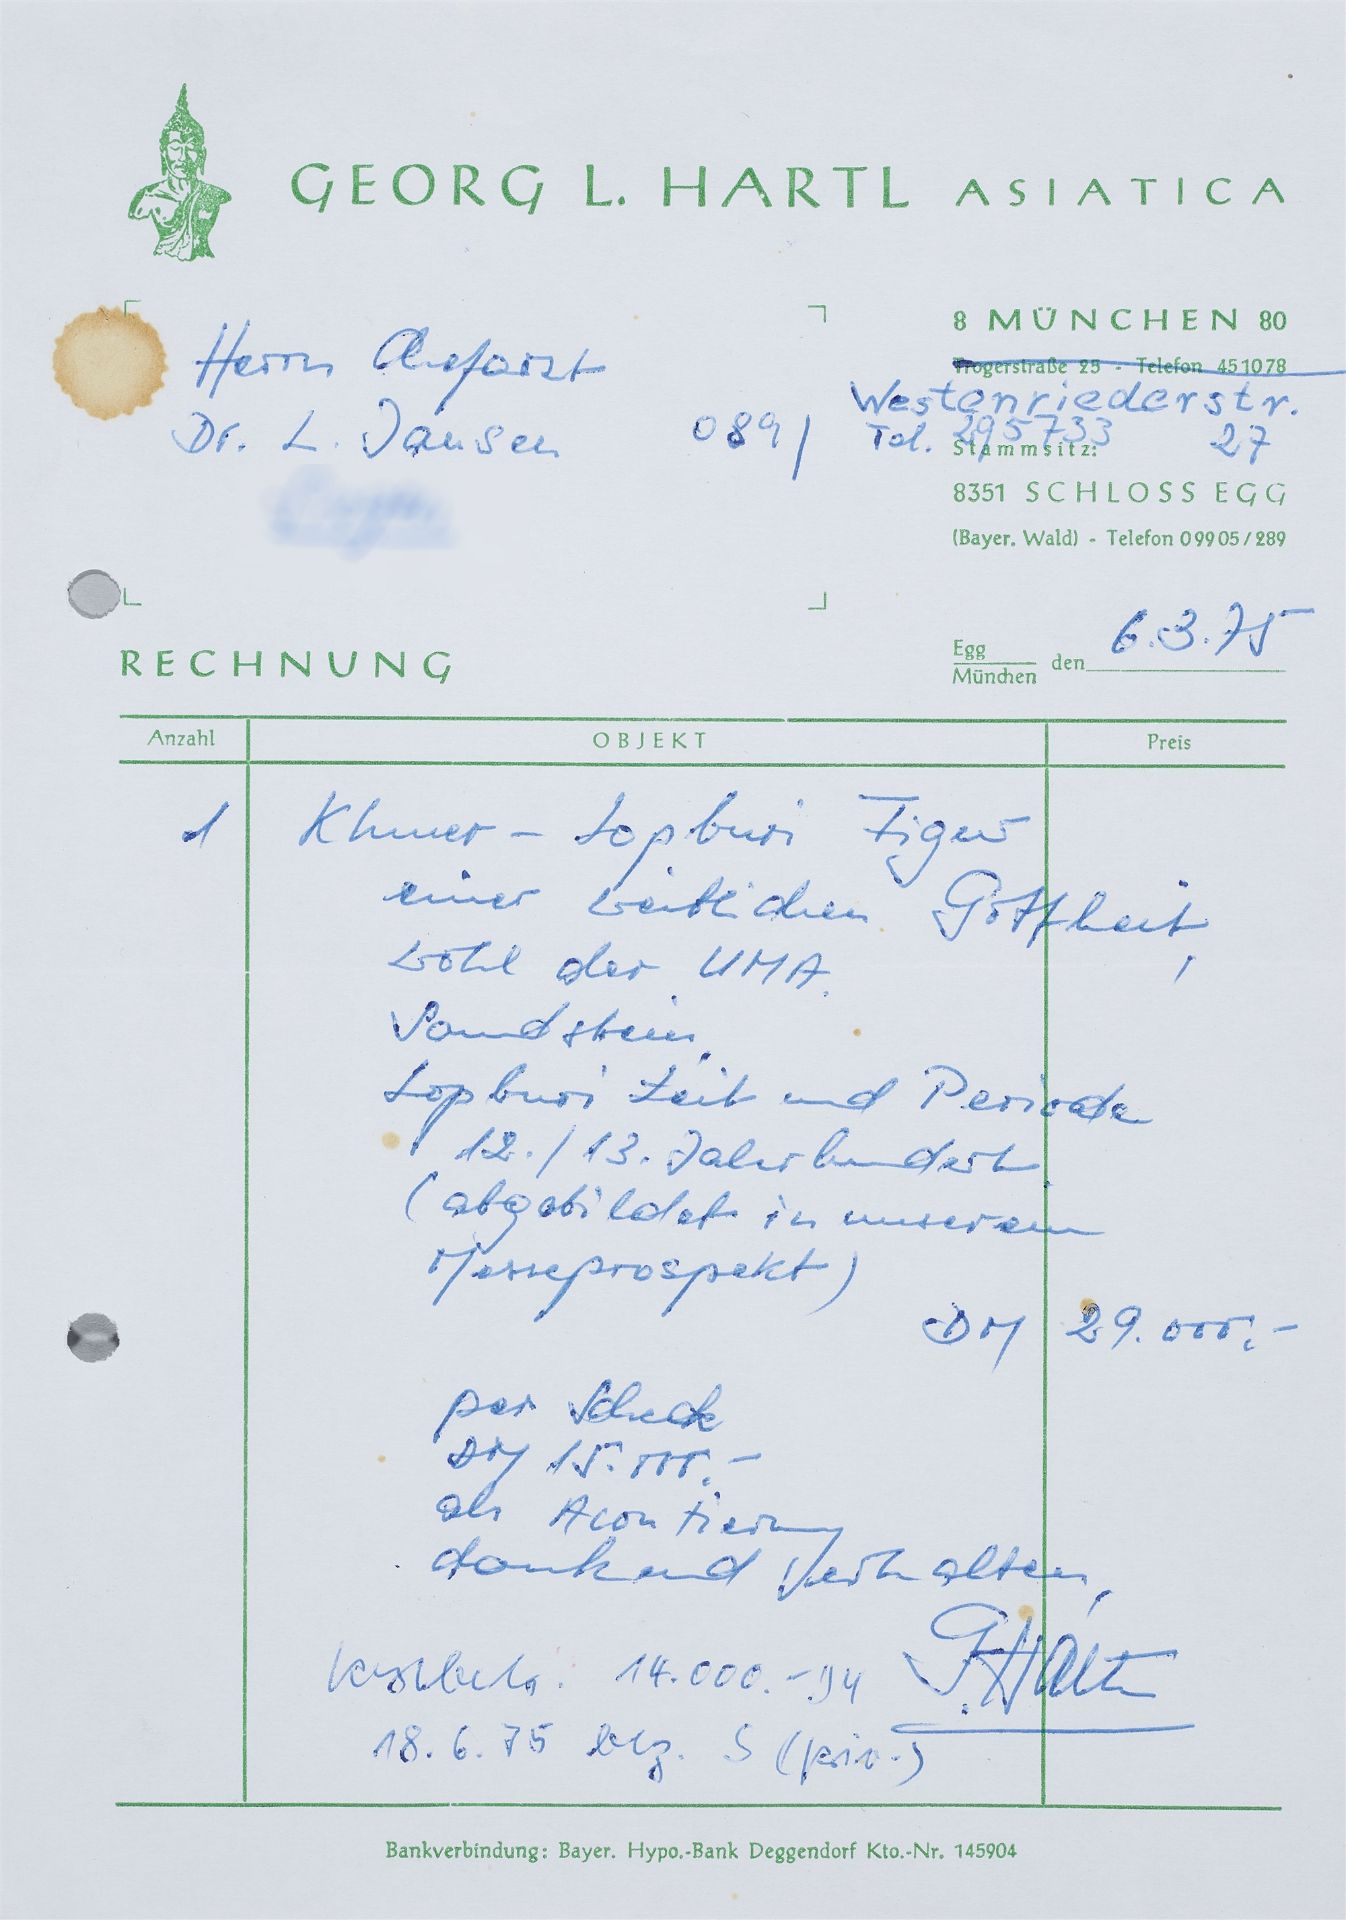 GEORG L. HARTL ASIATICA
8 MÜNCHEN 80
Trogerstraße 25 - Telefon 451078
Herrn Chefarzt
Westenriederstr.
Dr. L. Jansen
089/ Tel. 295733 27
Stammsitz:
8351 SCHLOSS EGG
(Bayer. Wald) - Telefon 09905/289
RECHNUNG
Egg
München
den 6.3.75
Anzahl OBJEKT Preis
1 Khmer - Lopburi Figur
einer weiblichen Gottheit,
wohl der UMA.
Sandstein,
Lopburi Zeit und Periode
12./13. Jahrhundert
(abgebildet in unserem
Messeprospekt)
DM 29.000.-
per Scheck
DM 15.000.-
als Acontierung
dankend erhalten,
G. Hartl
14.000.- DM
18.6.75 bez. S (priv.)
Bankverbindung: Bayer. Hypo.-Bank Deggendorf Kto.-Nr. 145904